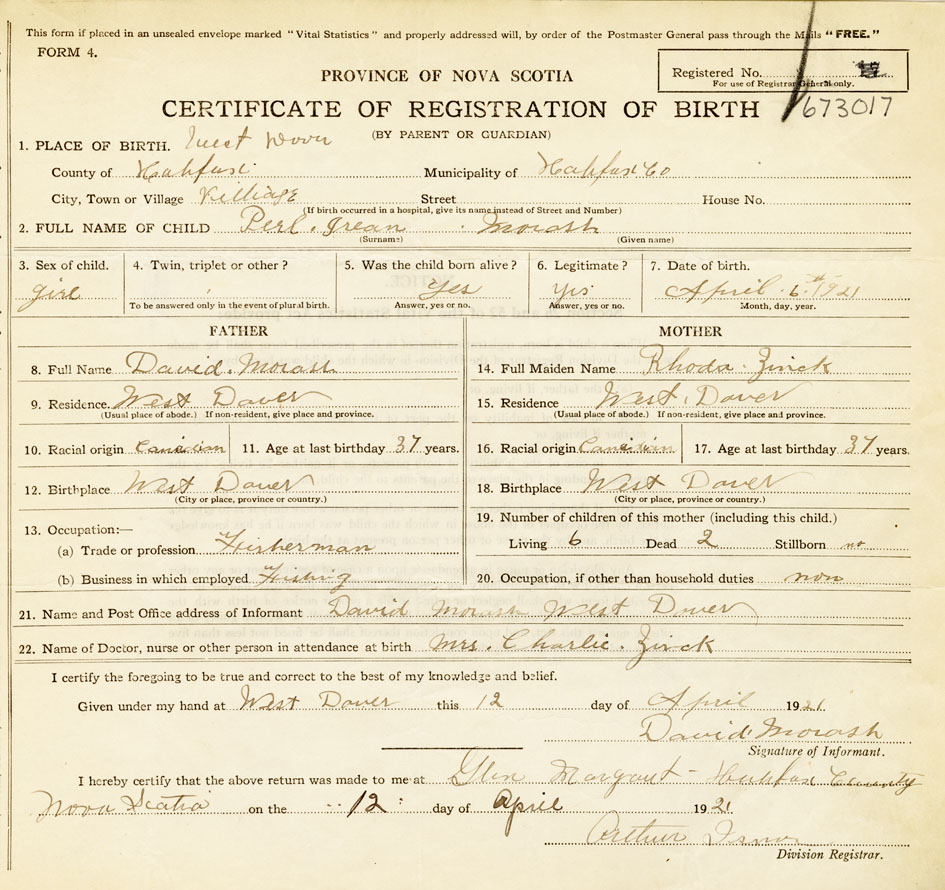 This form if placed in an unsealed envelope marked "Vital Statistics" and properly addressed will, by order of the Postmaster General pass through the Mails "FREE."
FORM 4.
PROVINCE OF NOVA SCOTIA
Registered No.
For use of Registrar General only.
CERTIFICATE OF REGISTRATION OF BIRTH
673017
(BY PARENT OR GUARDIAN)
1. PLACE OF BIRTH. West Dover
County of Halifax Municipality of Halifax Co
City, Town or Village Village Street House No.
(If birth occurred in a hospital, give its name instead of Street and Number)
2. FULL NAME OF CHILD Perl. Irean Morash
(Surname) (Given name)
3. Sex of child. 4. Twin, triplet or other? 5. Was the child born alive? 6. Legitimate? 7. Date of birth.
girl Yes Yis April 6th 1921
To be answered only in the event of plural birth. Answer, yes or no. Answer, yes or no. Month, day, year.
FATHER MOTHER
8. Full Name David. Morash 14. Full Maiden Name Rhoda. Zinck
9. Residence. West Dover 15. Residence West. Dover
(Usual place of abode.) If non-resident, give place and province. (Usual place of abode.) If non-resident, give place and province.
10. Racial origin Canadian 11. Age at last birthday 37 years. 16. Racial origin Canadian 17. Age at last birthday 37 years.
12. Birthplace West Dover 18. Birthplace West Dover
(City or place, province or country.) (City or place, province or country.)
13. Occupation:— 19. Number of children of this mother (including this child.)
(a) Trade or profession Fisherman Living 6 Dead 2 Stillborn no
(b) Business in which employed Fishing 20. Occupation, if other than household duties non
21. Name and Post Office address of Informant David Morash West Dover
22. Name of Doctor, nurse or other person in attendance at birth Mrs. Charlie. Zinck
I certify the foregoing to be true and correct to the best of my knowledge and belief.
Given under my hand at West Dover this 12 day of April 1921
David Morash
Signature of Informant.
I hereby certify that the above return was made to me at Glen Margaret - Halifax County
Nova Scotia on the 12 day of April 1921
Arthur
Division Registrar.